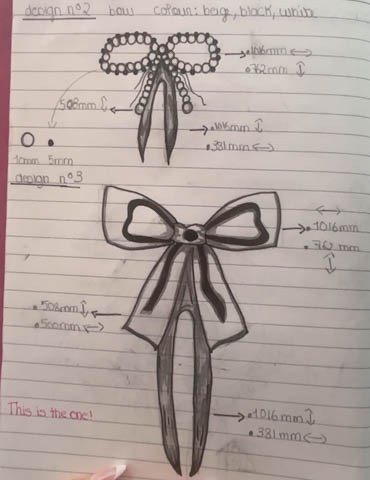 design nº2 bow colour: beige, black, white
• 1016mm ↔
• 762mm ↕
508mm ↕
• 1016mm ↕
• 381mm ↔
10mm 5mm
design nº3
↔
• 1016mm
• 762 mm
↕
• 508mm ↕
• 500mm ↔
This is the one!
• 1016mm ↕
• 381mm ↔